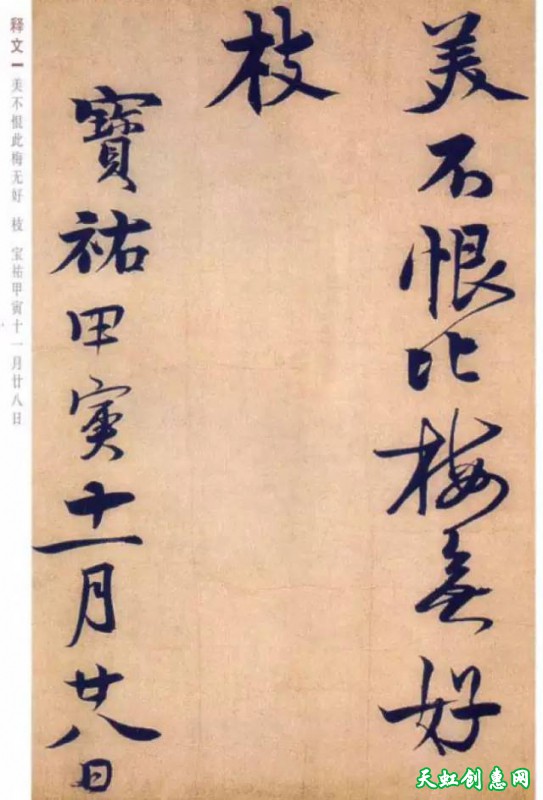 美不恨此梅無好
枝
寶祐甲寅十一月廿八日
释文 美不恨此梅无好 枝 宝祐甲寅十一月廿八日
天虹创惠网